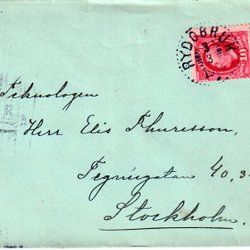 RYDÖBRUK
10
Teknologen
Herr Elis Thuresson,
Tegnérgatan 40, 3
Stockholm.